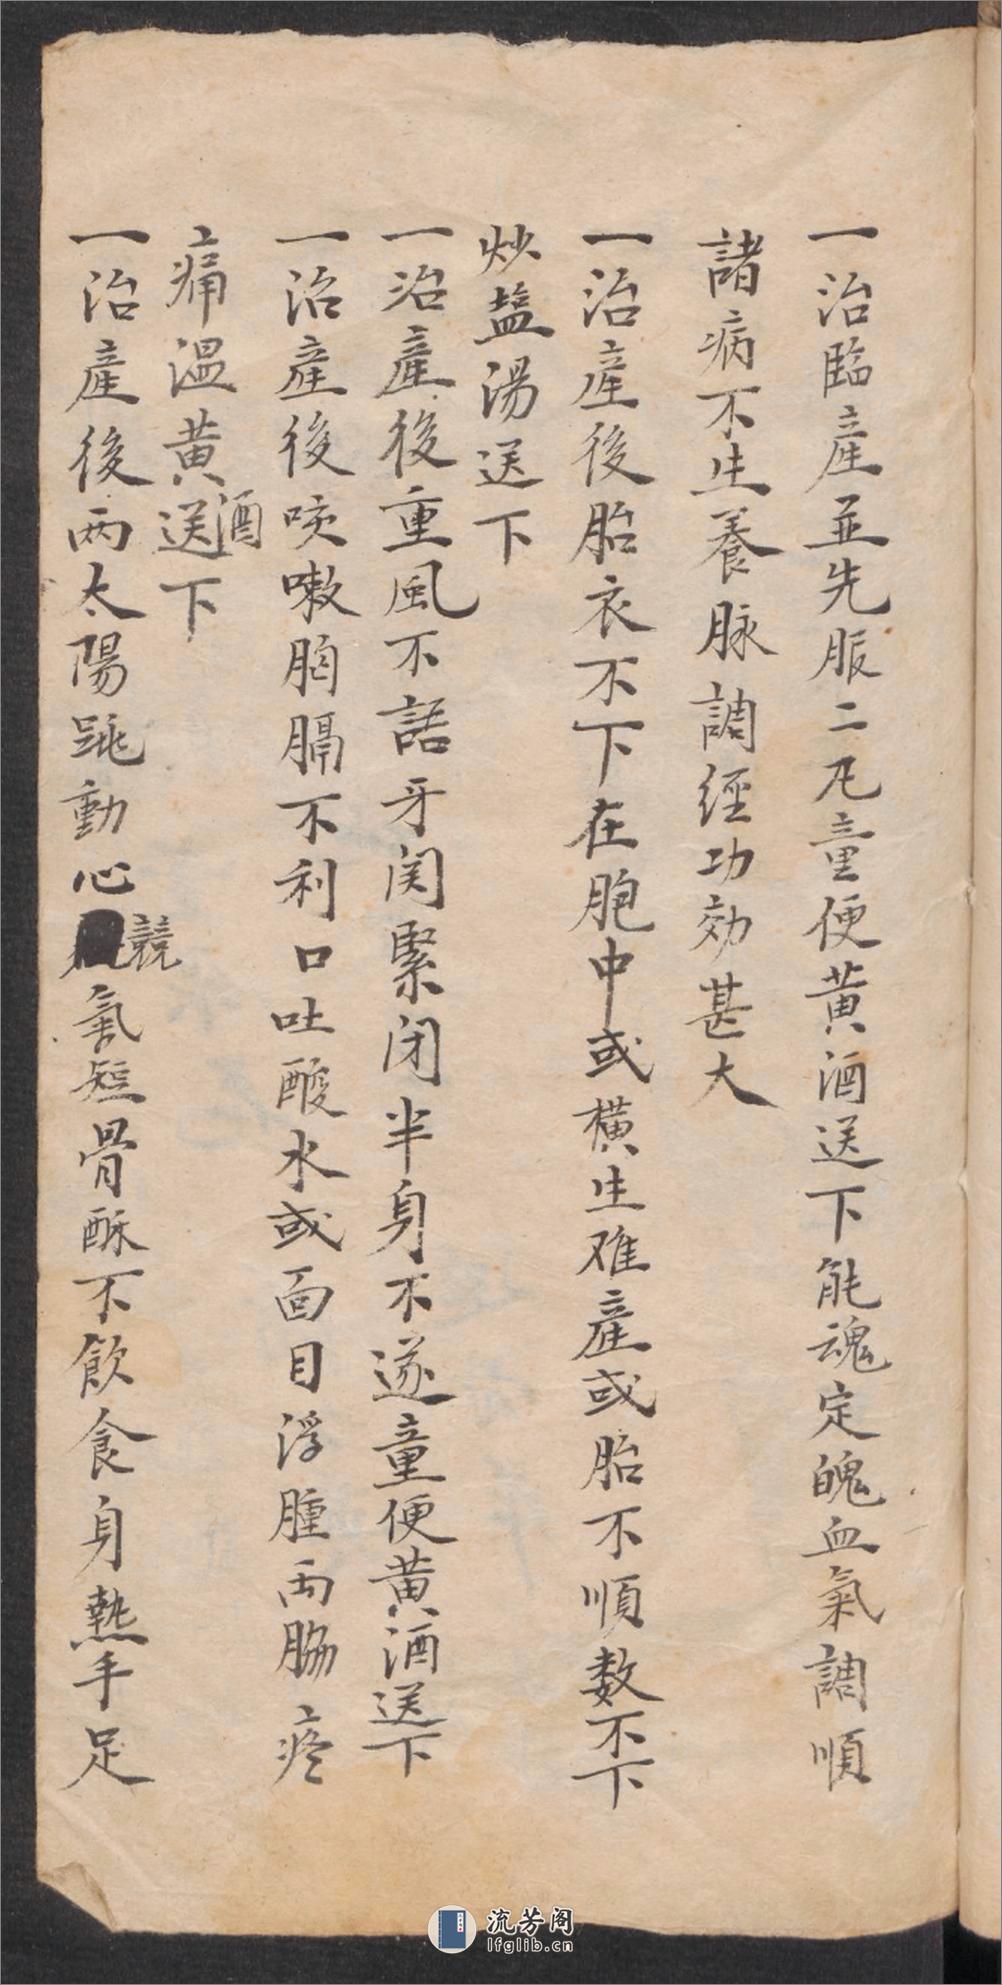 一治臨產並先服二凡童便黄酒送下能魂定魄血氣調順
諸病不生養脉調經功効甚大
一治產後胎衣不下在胞中或橫生难產或胎不順数不下
炒盐湯送下
一治產後重風不語牙関緊闭半身不遂童便黄酒送下
一治產後咳嗽胸膈不利口吐酸水或面目浮腫両脇疼
痛温黄酒送下
一治產後两太陽跳動心競氣短骨酥不飲食身熱手足
流芳阁
lfglib.cn